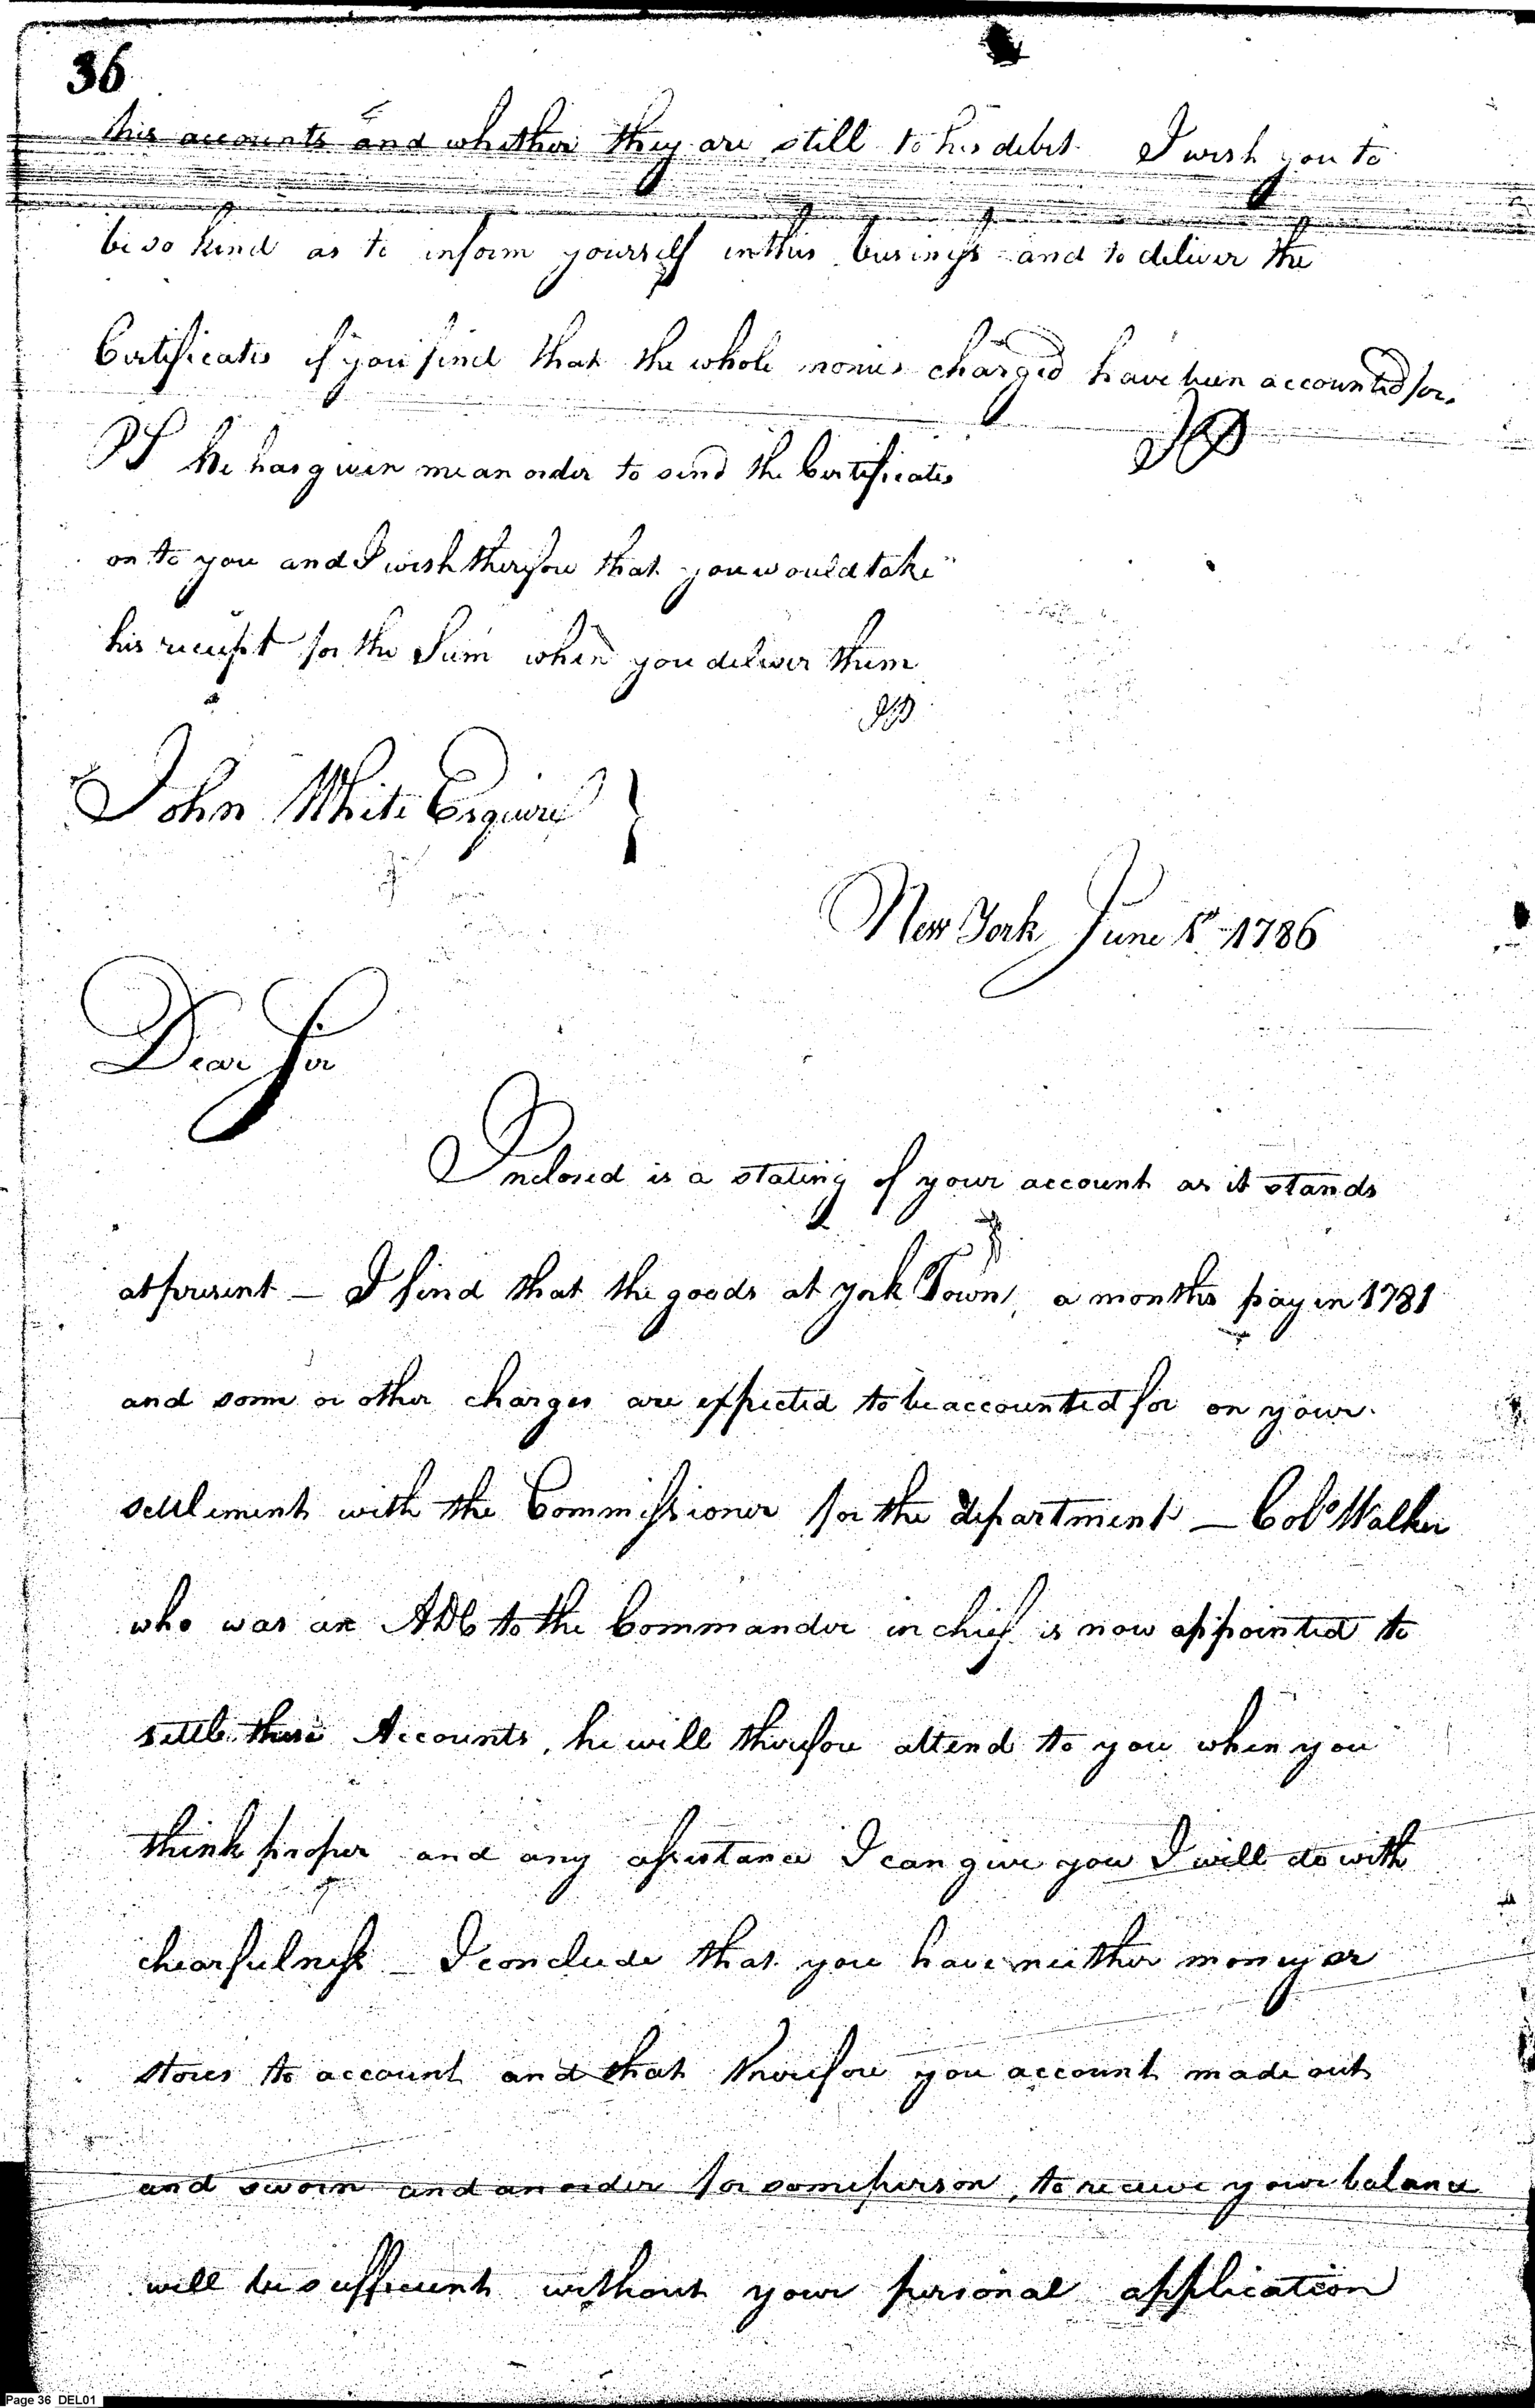 36
his accounts and whether they are still to his debit. I wish you to
be so kind as to inform yourself in this business and to deliver the
Certificates if you find that the whole monies charged have been accounted for.
JP
PS he has given me an order to send the Certificates
on to you and I wish therefore that you would take
his receipt for the Sum when you deliver them
JP
John White Esquire }
New York June 1st 1786
Dear Sir
Inclosed is a stating of your account as it stands
at present – I find that the goods at york Town, a months pay in 1781
and some or other charges are expected to be accounted for on your
settlement with the Commissioner for the department – Colo Walker
who was an ADC to the Commander in chief is now appointed to
settle these Accounts, he will therefore attend to you when you
think proper and any assistance I can give you I will do with
chearfulness – I conclude that you have neither money or
stores to account and that therefore you account made out
and sworn and an order for some person, to receive your balance
will be sufficient without your personal application
Page 36 DEL01